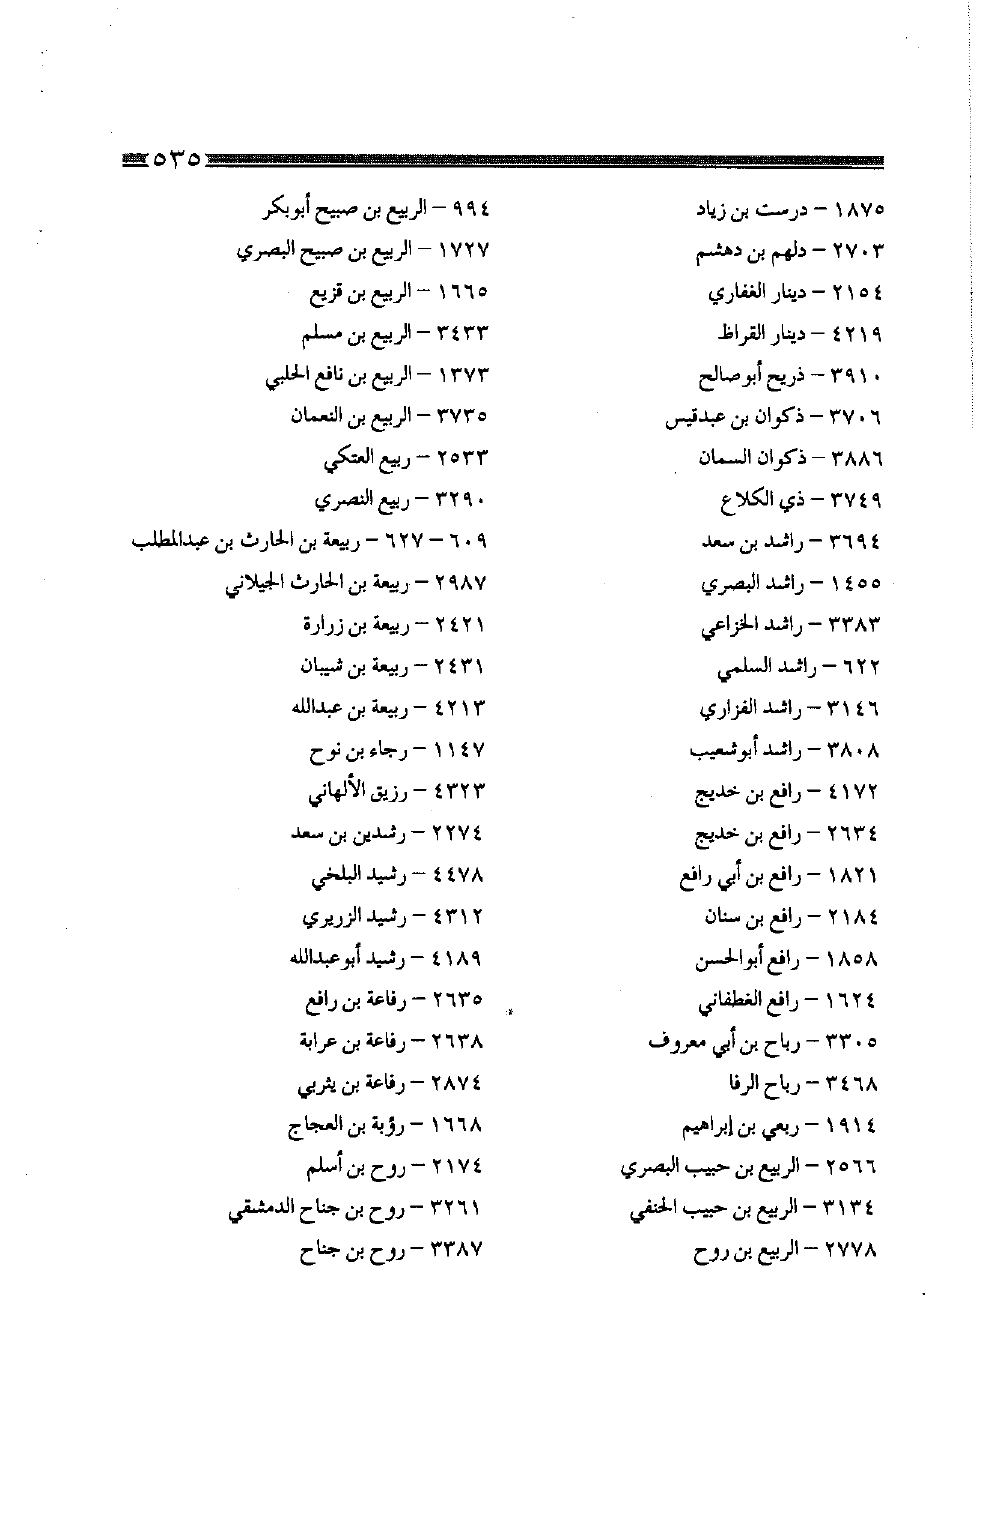 ٥٣٥
١٨٧٥ – درست بن زياد
٢٧٠٣ – دلهم بن دهشم
٢١٥٤ – دينار الغفاري
٤٢١٩ – دينار القراظ
٣٩١٠ – ذريح أبوصالح
٣٧٠٦ – ذكوان بن عبدقيس
٣٨٨٦ – ذكوان السمان
٣٧٤٩ – ذي الكلاع
٣٦٩٤ – راشد بن سعد
١٤٥٥ – راشد البصري
٣٣٨٣ – راشد الخزاعي
٦٢٢ – راشد السلمي
٣١٤٦ – راشد الفزاري
٣٨٠٨ – راشد أبوشعيب
٤١٧٢ – رافع بن خديج
٢٦٣٤ – رافع بن خديج
١٨٢١ – رافع بن أبي رافع
٢١٨٤ – رافع بن سنان
١٨٥٨ – رافع أبوالحسن
١٦٢٤ – رافع الغطفاني
٣٣٠٥ – رباح بن أبي معروف
٣٤٦٨ – رباح الرفا
١٩١٤ – ربعي بن إبراهيم
٢٥٦٦ – الربيع بن حبيب البصري
٣١٣٤ – الربيع بن حبيب الحنفي
٢٧٧٨ – الربيع بن روح
٩٩٤ – الربيع بن صبيح أبوبكر
١٧٢٧ – الربيع بن صبيح البصري
١٦٦٥ – الربيع بن قزيع
٣٤٣٣ – الربيع بن مسلم
١٣٧٣ – الربيع بن نافع الحلبي
٣٧٣٥ – الربيع بن النعمان
٢٥٣٣ – ربيع العتكي
٣٢٩٠ – ربيع النصري
٦٠٩ – ٦٢٧ – ربيعة بن الحارث بن عبدالمطلب
٢٩٨٧ – ربيعة بن الحارث الجيلاني
٢٤٢١ – ربيعة بن زرارة
٢٤٣١ – ربيعة بن شيبان
٤٢١٣ – ربيعة بن عبدالله
١١٤٧ – رجاء بن نوح
٤٣٢٣ – رزيق الألهاني
٢٢٧٤ – رشدين بن سعد
٤٤٧٨ – رشيد البلخي
٤٣١٢ – رشيد الزريري
٤١٨٩ – رشيد أبوعبدالله
٢٦٣٥ – رفاعة بن رافع
٢٦٣٨ – رفاعة بن عرابة
٢٨٧٤ – رفاعة بن يثربي
١٦٦٨ – رؤبة بن العجاج
٢١٧٤ – روح بن أسلم
٣٢٦١ – روح بن جناح الدمشقي
٣٣٨٧ – روح بن جناح